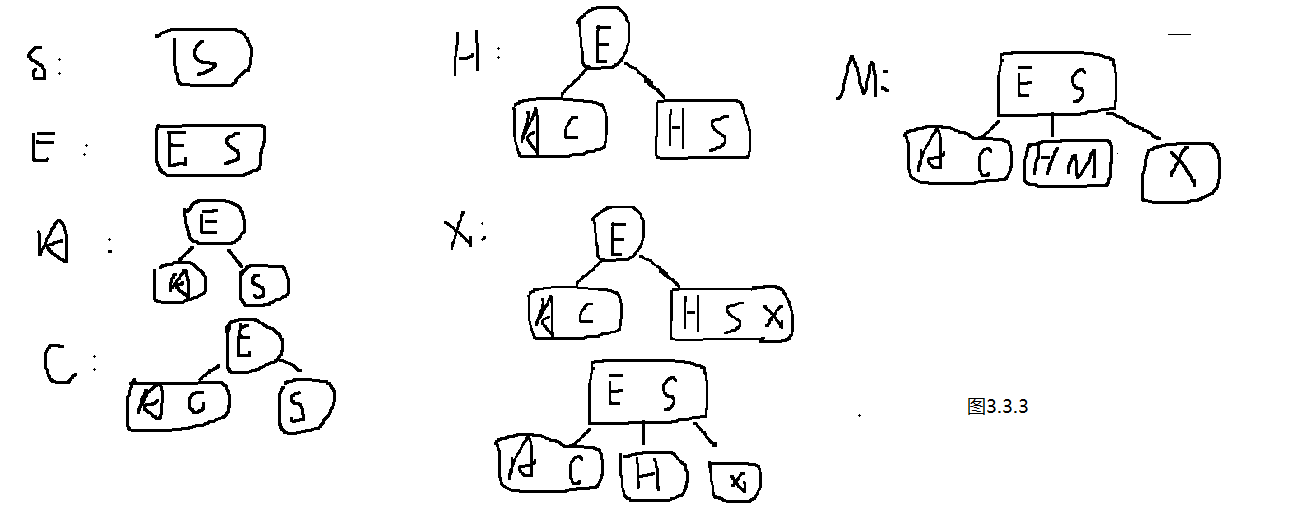 S: S
E: E S
A: E
A S
C: E
A C S
H: E
A C H S
X: E
A C H S X
E S
A C H X
M: E S
A C H M X
图3.3.3